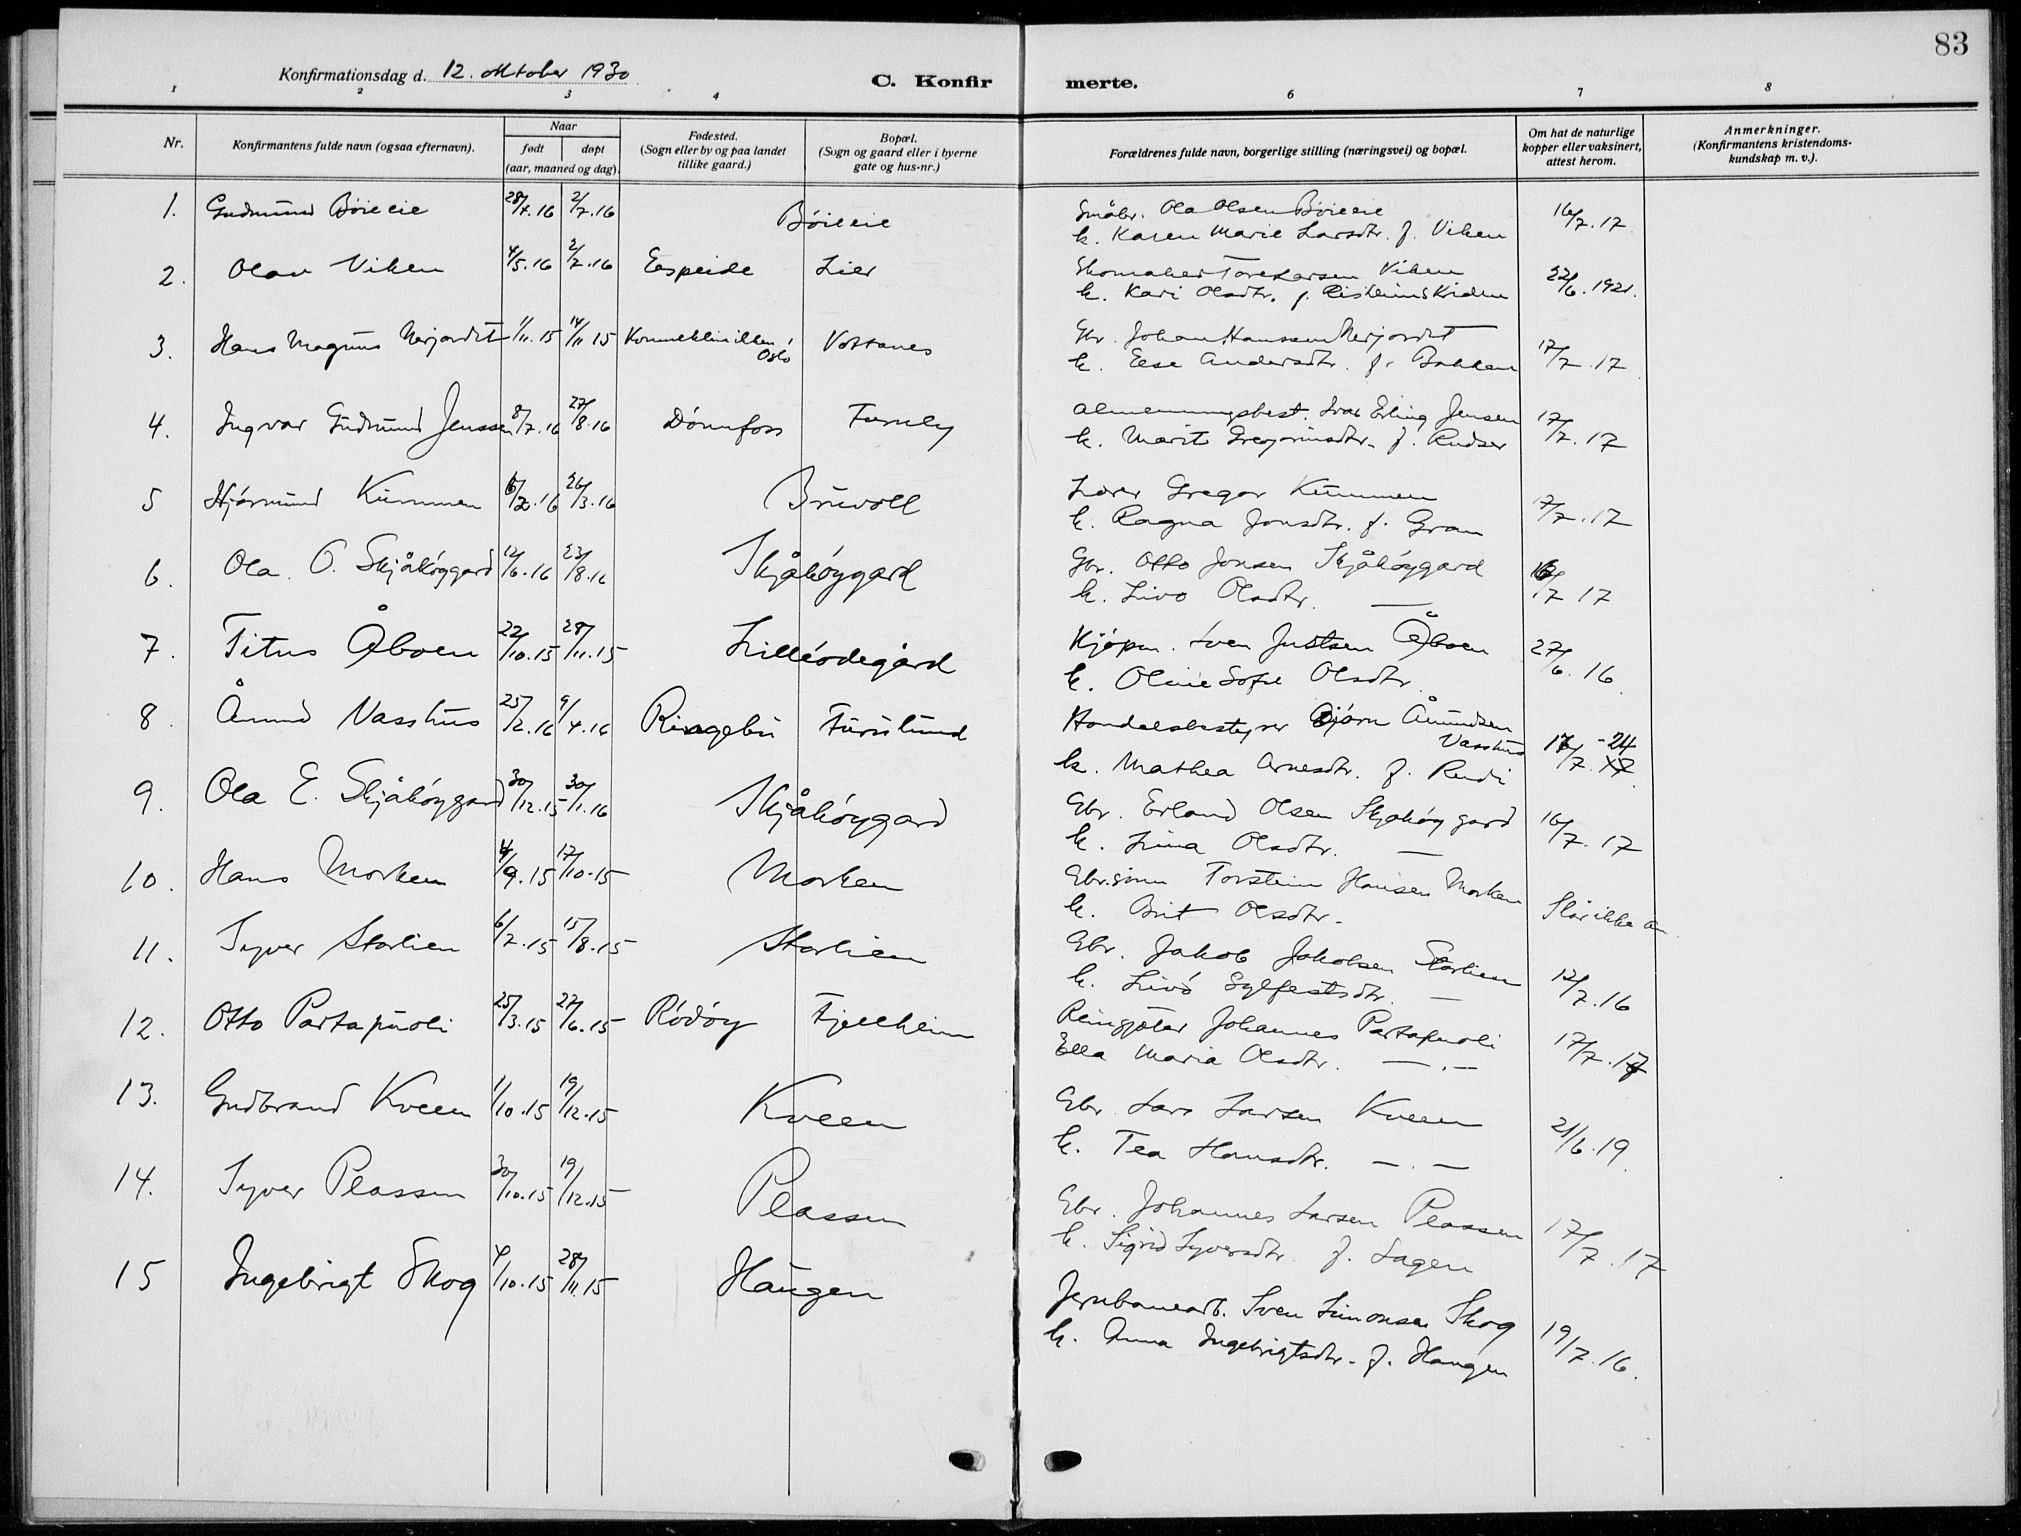 83
Konfirmationsdag d. 12. oktober 1930
C. Konfir merte.
1 2 3 4 6 7 8
Nr.
Konfirmantens fulde navn (ogsaa efternavn).
Naar
født døpt
(aar, maaned og dag)
Fødested.
(Sogn eller by og paa landet
tillike gaard.)
Bopæl.
(Sogn og gaard eller i byerne
gate og hus-nr.)
Forældrenes fulde navn, borgerlige stilling (næringsvei) og bopæl.
Om hat de naturlige
kopper eller vaksinert,
attest herom.
Anmerkninger.
(Konfirmantens kristendoms-
kundskap m. v.).
1. Gudmund Böieeie 2/7.16 Böieeie Småbr. Ola Olsen Böieeie 16/7.17
k. Karen Marie Larsdtr. f. Viken
2. Olav Viken 4/5.16 2/7.16 Espeide Lier Skomaker Tore Larsen Viken 22/6.1921.
k. Kari Olsdtr. f.
3. Hans Magnus Nerjordet 1/11.15 14/11 15 Oslo Vottanes Gbr. Johan Hanssen Nerjordet 17/7.17
k. Else Andersdtr. f. Bakken
4. Ingvar Gudmund Jenssen 8/7.16 27/8.16 Dönnfoss Furuly Almenningsbest. Ivar Erling Jensen 17/7.17
k. Marit Gregoriusdtr. f. Rudser
5 Hjörmund Kummen 26/3.16 Bruvoll Lærer Gregor Kummen 17/7.17
k. Ragna Jonsdtr. f. Gran
6. Ola O. Skjåköygard 12/6.16 23/8.16 Skjåköygard Gbr. Otto Jonsen Skjåköygard 16/7 17
k. Livo Olsdtr. —
7. Titus Åboen 22/10.15 28/11.15 Lilleödegård Kjöpm. Iver Justsen Åboen 27/6.16
k. Oline Sofie Olsdtr.
8. Åmund Vasshus 25/2.16 9/4.16 Ringebu Furulund Handelsbestyrer Björn Åmundsen
Vasshus 17/7.17 -24
k. Mathea Arnesdtr. f. Rudi
9. Ola E. Skjåköygard 30/12.15 30/1.16 Skjåköygard Gbr. Erland Olsen Skjåköygard 16/7.17
k. Lina Olsdtr. —
10. Hans Morken 4/9.15 17/10.15 Morken Gbr.sönn Torstein Hansen Morken Slår ikke an.
k. Brit Olsdtr.
11. Syver Storlien 6/7.15 15/8.15 Storlien Gbr. Jakob Jakobsen Storlien 12/7.16
k. Livö Sylfestsdtr. —
12. Otto Partapuoli 25/3.15 27/6.15 Rödöy Fjellheim Reingjæter Johannes Partapuoli 17/7.17
Ella Maria Olsdtr. — . —
13. Gudbrand Kveen 1/10.15 19/12.15 Kveen Gbr. Lars Larsen Kveen 21/6.19.
k. Tea Hansdtr. — . —
14. Syver Plassen 30/10.15 19/12.15 Plassen Gbr. Johannes Larsen Plassen 17/7.17
k. Sigrid Syversdtr. f. Lagen
15 Ingebrigt Skog 4/10.15 28/11.15 Haugen Jernbanearb. Sven Simonsen Skog 19/7.16.
k. Anna Ingebrigtsdtr. f. Haugen